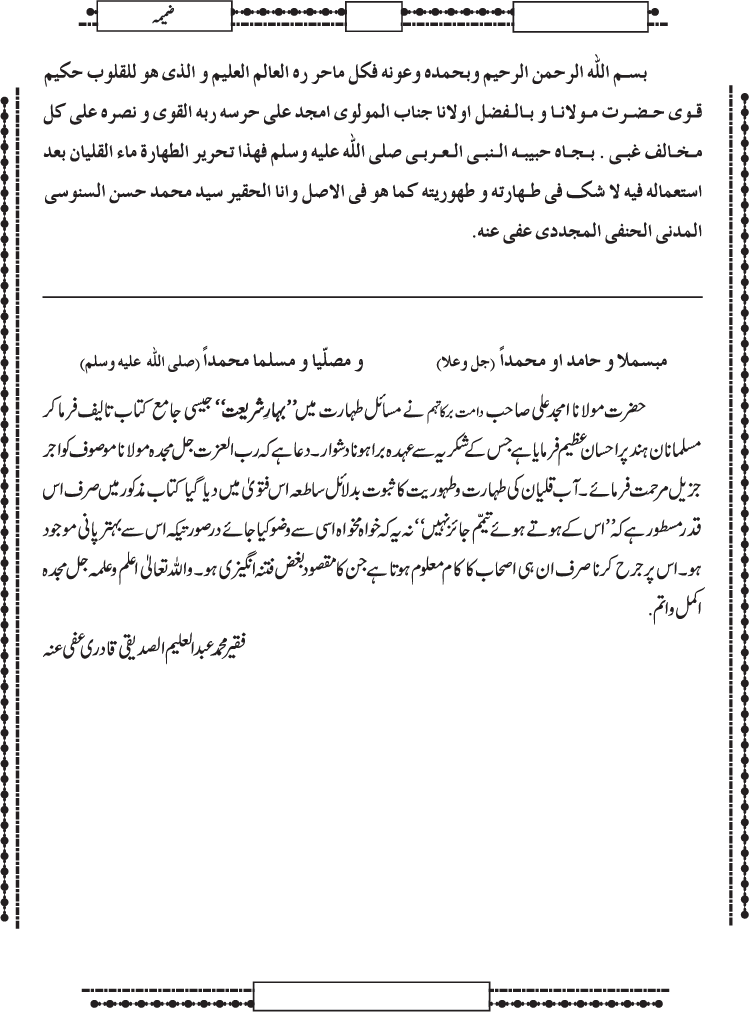 ضمیمہ
بسم اللّٰه الرحمن الرحيم وبحمده وعونه فكل ماحر ره العالم العليم و الذى هو للقلوب حكيم
قوى حضرت مولانا و بالفضل اولانا جناب المولوى امجد على حرسه ربه القوى و نصره على كل
مخالف غبى . بجاه حبيبه النبى العربى صلى اللّٰه عليه وسلم فهذا تحرير الطهارة ماء القليان بعد
استعماله فيه لا شك فى طهارته و طهوريته كما هو فى الاصل وانا الحقير سيد محمد حسن السنوسى
المدنى الحنفى المجددى عفى عنه.
مبسملا و حامد او محمداً (جل وعلا) و مصلّيا و مسلما محمداً (صلى اللّٰه عليه وسلم)
حضرت مولانا امجد علی صاحب دامت برکاتہم نے مسائل طہارت میں ’’بہارِشریعت‘‘ جیسی جامع کتاب تالیف فرما کر
مسلمانان ہند پر احسان عظیم فرمایا ہے جس کے شکریہ سے عہدہ برا ہونا دشوار۔ دعا ہے کہ رب العزت جل مجدہ مولانا موصوف کو اجر
جزیل مرحمت فرمائے۔ آب قلیان کی طہارت وطہوریت کا ثبوت بدلائل ساطعہ اس فتویٰ میں دیا گیا کتاب مذکور میں صرف اس
قدر مسطور ہے کہ ’’اس کے ہوتے ہوئے تیمّم جائز نہیں‘‘ نہ یہ کہ خواہ مخواہ اسی سے وضو کیا جائے درصورتیکہ اس سے بہتر پانی موجود
ہو۔ اس پر جرح کرنا صرف ان ہی اصحاب کا کام معلوم ہوتا ہے جن کا مقصود بغض فتنہ انگیزی ہو۔ واللہ تعالیٰ اعلم وعلمہ جل مجدہ
اکمل واتم.
فقیر محمد عبدالعلیم الصدیقی قادری عفی عنہ